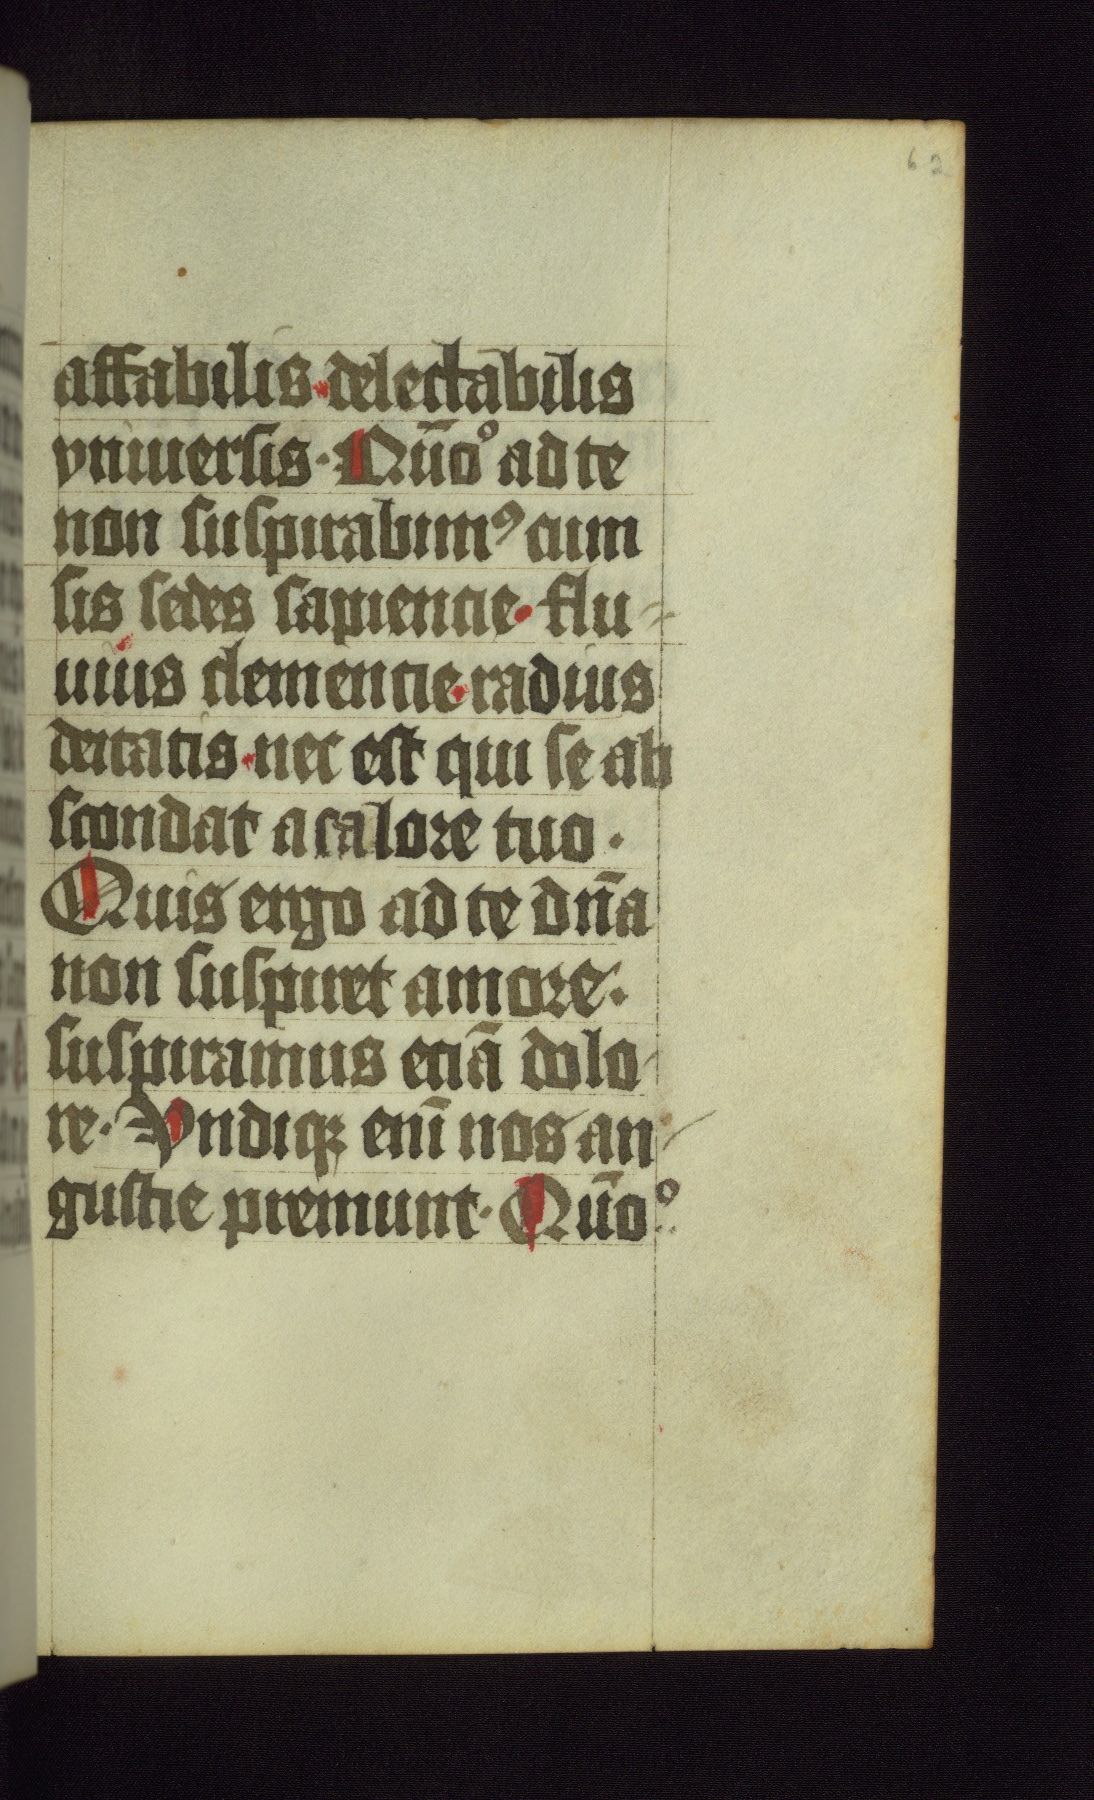 62
affabilis · delectabilis
vniuersis · Qũoͦ ad te
non suspirabimꝰ cum
sis sedes sapientie · flu-
uius clementie · radius
deitatis · nec est qui se ab
scondat a calore tuo ·
Quis ergo ad te dn̄a
non suspiret amore ·
suspiramus etiā dolo-
re · Vndiqꝫ enī nos an-
gustie premunt · Qũoͦ